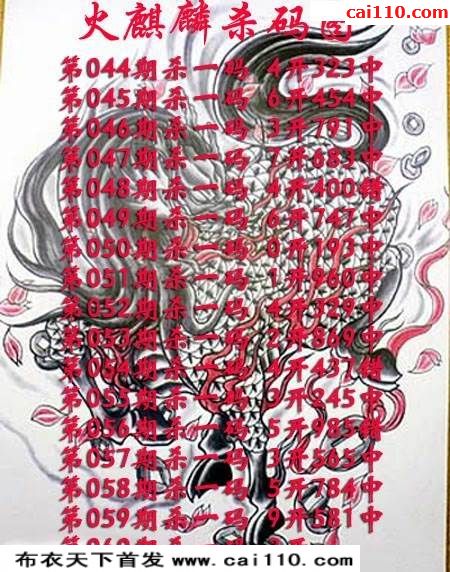 cai110.com
火麒麟杀码
第044期杀一码 4开323中
第045期杀一码 6开454中
第046期杀一码 3开791中
第047期杀一码 7开683中
第048期杀一码 4开400错
第049期杀一码 6开747中
第050期杀一码 0开193中
第051期杀一码 1开960中
第052期杀一码 4开329中
第053期杀一码 2开869中
第054期杀一码 4开437错
第055期杀一码 3开845中
第056期杀一码 5开985错
第057期杀一码 3开565中
第058期杀一码 5开784中
第059期杀一码 9开581中
布衣天下首发 www.cai110.com